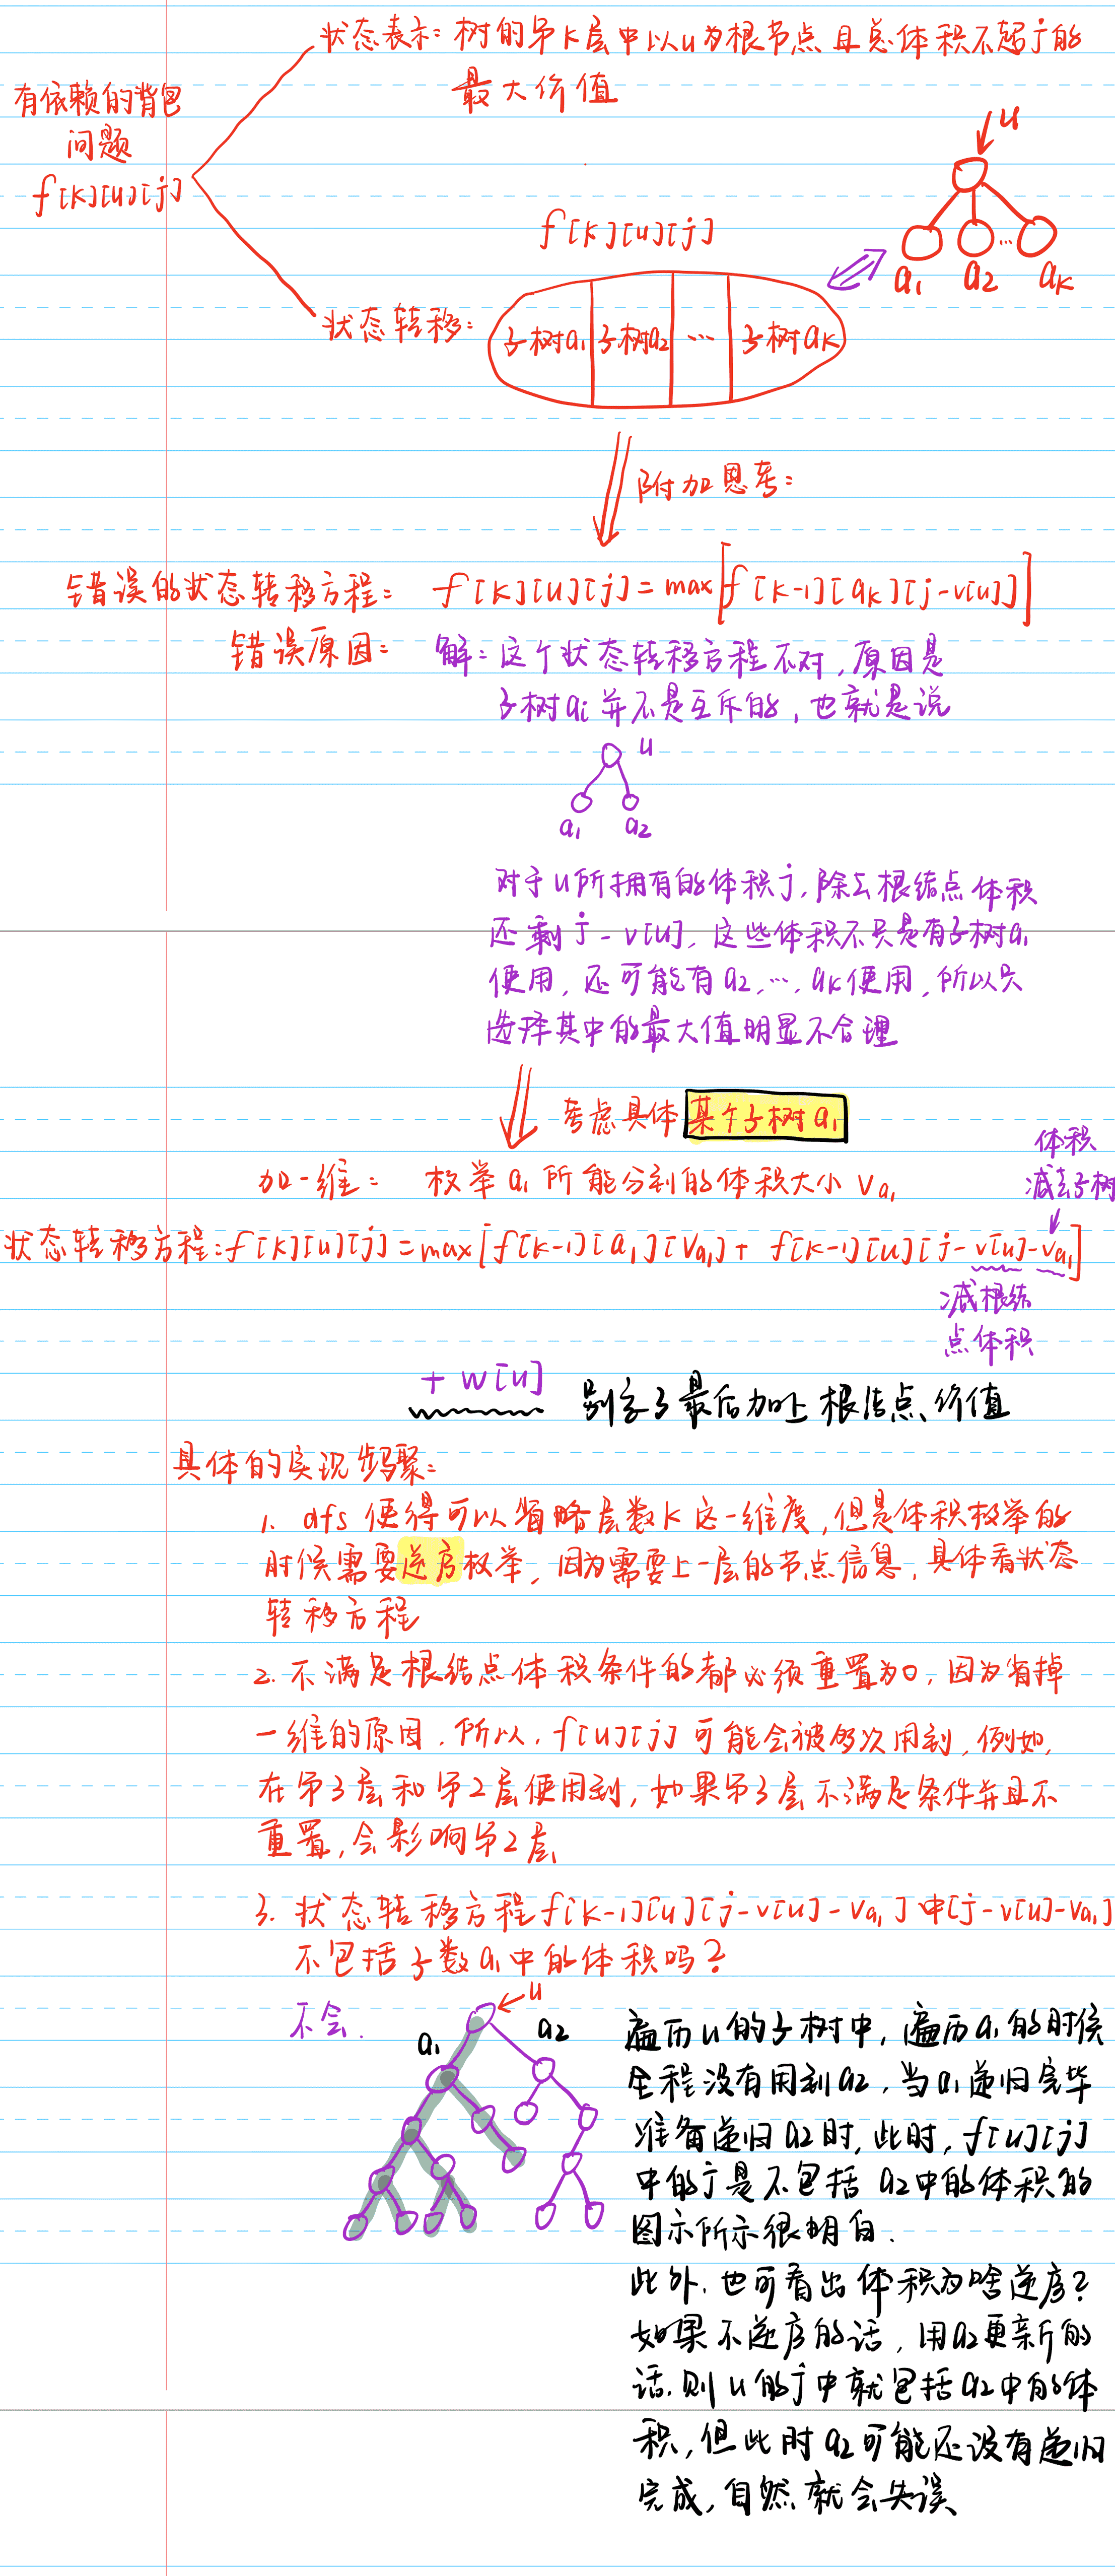 状态表示：树的第K层中以u为根节点且总体积不超j的
最大价值
有依赖的背包
问题
f[K][u][j]
u
a₁ a₂ … aₖ
f[K][u][j]
状态转移：
子树a₁ 子树a₂ … 子树aₖ
附加思考：
错误的状态转移方程： f[K][u][j]=max[f[K-1][aₖ][j-v[u]]]
错误原因： 解：这个状态转移方程不对，原因是
子树aᵢ并不是互斥的，也就是说
u
a₁ a₂
对于u所拥有的体积j，除去根结点体积
还剩j-v[u]，这些体积不只是有子树a₁
使用，还可能有a₂，…，aₖ使用，所以只
选择其中的最大值明显不合理
考虑具体某个子树a₁
加一维： 枚举a₁所能分到的体积大小Va₁
体积
减去子树
状态转移方程：f[K][u][j]=max[f[K-1][a₁][Va₁]+f[K-1][u][j-v[u]-Va₁]]
减根结
点体积
+w[u] 别忘了最后加上根结点价值
具体的实现步骤：
1. dfs使得可以省略层数K这一维度，但是体积枚举的
时候需要逆序枚举，因为需要上一层的节点信息，具体看状态
转移方程
2. 不满足根结点体积条件的都必须重置为0，因为省掉
一维的原因，所以，f[u][j]可能会被多次用到，例如，
在第3层和第2层使用到，如果第3层不满足条件并且不
重置，会影响第2层
3. 状态转移方程f[K-1][u][j-v[u]-Va₁]中[j-v[u]-Va₁]
不包括子数a₁中的体积吗？
不会.
u
a₁ a₂
遍历u的子树中，遍历a₁的时候
全程没有用到a₂，当a₁递归完毕
准备递归a₂时，此时，f[u][j]
中的j是不包括a₂中的体积的
图示所示很明白.
此外，也可看出体积为啥逆序？
如果不逆序的话，用a₂更新的
话，则u的j中就包括a₂中的体
积，但此时a₂可能还没有递归
完成，自然就会失误